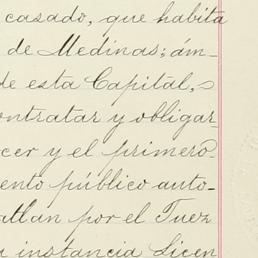 casado, que habita
de Medinas; ám-
de esta Capital,
ontratar y obligar
cer y el primero
ento público auto-
atlan por el Juez
instancia Licen